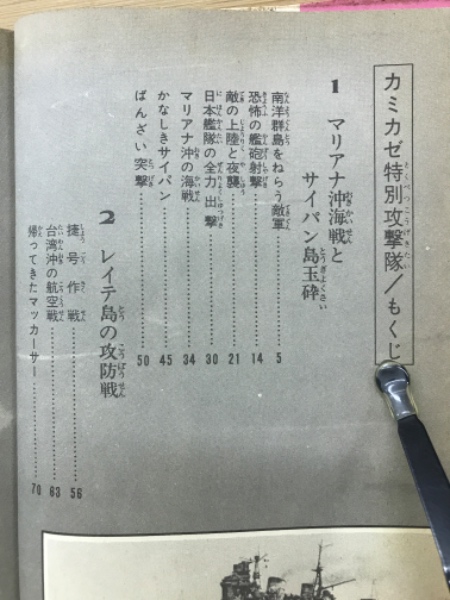 カミカゼ特別攻撃隊/もくじ
1 マリアナ沖海戦と
サイパン島玉砕
南洋群島をねらう敵軍……5
恐怖の艦砲射撃……14
敵の上陸と夜襲……21
日本艦隊の全力出撃……30
マリアナ沖の海戦……34
かなしきサイパン……45
ばんざい突撃……50
2 レイテ島の攻防戦
捷号作戦……56
台湾沖の航空戦……63
帰ってきたマッカーサー……70